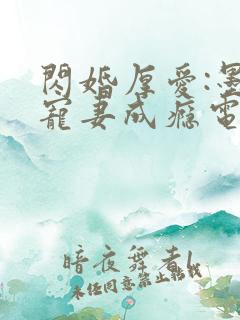 閃婚厚愛:墨
寵妻成癮電
暗夜舞者l
未经同意禁止转载